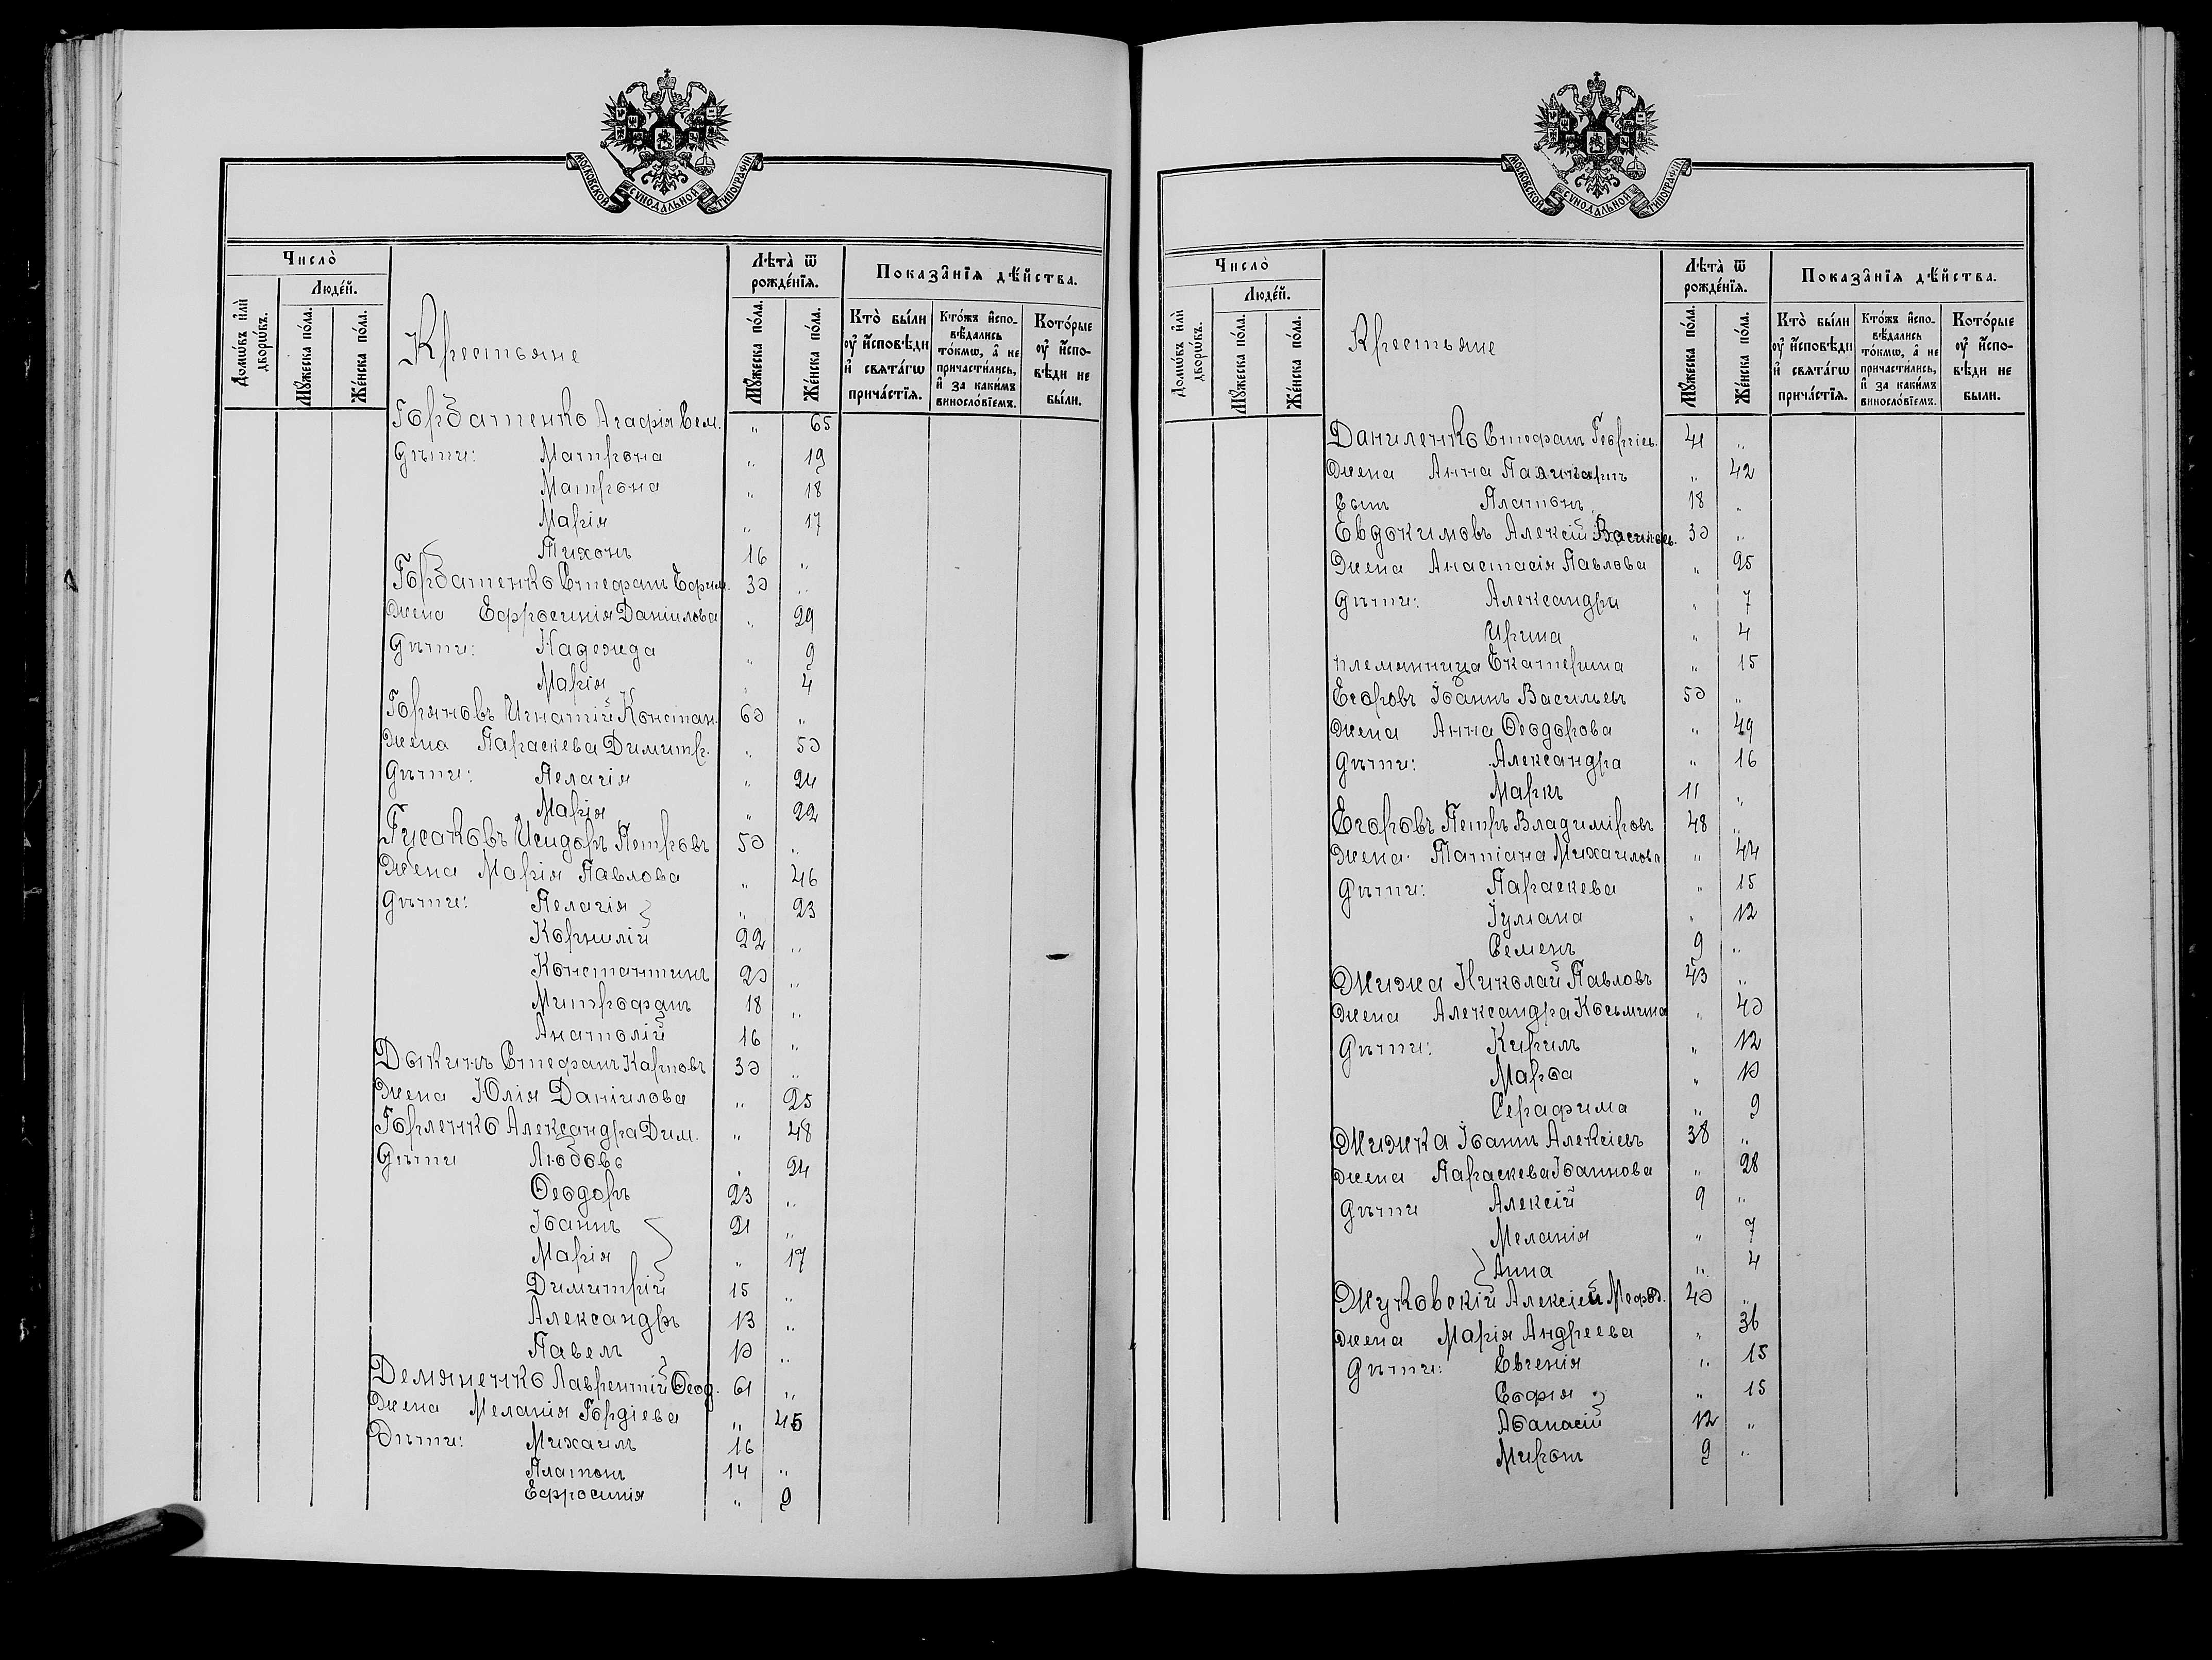 МОСКОВСКОЙ СѴНОДАЛЬНОЙ ТИПОГРАФІИ
Число̀
Людéй.
Домѡ́въ и҆лѝ дворѡ́въ.
Мꙋ́жеска по́ла.
Же́нска по́ла.
Крестьяне
Лѣта̀ ѿ рожде́нїѧ.
Мꙋ́жеска по́ла.
Же́нска по́ла.
Показа̑нїѧ дѣ́йства.
Кто̀ бы́ли ᲂу҆ и҆́сповѣди и҆ свѧта́гѡ прича́стїѧ.
Кто́жъ и҆спо-вѣ́дались то́кмѡ, а҆ не причасти́лись, и҆ за каки́мъ винословїемъ.
Кото́рые ᲂу҆ и҆́спо-вѣди не бы́ли.
Горбатенко Агафія Сем. " 65
дѣти: Матрона " 19
Матрона " 18
Марія " 17
Тихонъ 16 "
Горбатенко Стефанъ Ефим. 30 "
жена Ефросинія Даніилова " 29
дѣти: Надежда " 9
Марія " 4
Горяновъ Игнатій Констан. 60 "
жена Параскева Димитр. " 50
дѣти: Пелагія " 24
Марія " 22
Гусаковъ Исидоръ Петровъ 50 "
Жена Марія Павлова " 46
дѣти: Пелагія " 23
Корнилій 22 "
Константинъ 20 "
Митрофанъ 18 "
Анатолій 16 "
Дыкинъ Стефанъ Карповъ 30 "
Жена Юлія Даніилова " 25
Горленко Александра Дим. " 48
дѣти Любовь " 24
Ѳеодоръ 23 "
Іоаннъ 21 "
Марія " 17
Димитрій 15 "
Александръ 13 "
Павелъ 10 "
Демяненко Лаврентій Ѳеод. 61 "
Жена Меланія Гордіева " 45
Дѣти: Михаилъ 16
Платонъ 14 "
Ефросинія " 9
МОСКОВСКОЙ СѴНОДАЛЬНОЙ ТИПОГРАФІИ
Число̀
Людéй.
Домѡ́въ и҆лѝ дворѡ́въ.
Мꙋ́жеска по́ла.
Же́нска по́ла.
Крестьяне
Лѣта̀ ѿ рожде́нїѧ.
Мꙋ́жеска по́ла.
Же́нска по́ла.
Показа̑нїѧ дѣ́йства.
Кто̀ бы́ли ᲂу҆ и҆́сповѣди и҆ свѧта́гѡ прича́стїѧ.
Кто́жъ и҆спо-вѣ́дались то́кмѡ, а҆ не причасти́лись, и҆ за каки́мъ винословїемъ.
Кото́рые ᲂу҆ и҆́спо-вѣди не бы́ли.
Даниленко Стефанъ Георгіев. 41 "
Жена Анна Паликарп " 42
Сынъ Платонъ 18 "
Евдокимовъ Алексій Васильев. 30 "
Жена Анастасія Павлова " 25
дѣти: Александра " 7
Ирина " 4
племянница Екатерина " 15
Егоровъ Іоаннъ Васильевъ 50 "
Жена Анна Ѳеодорова " 49
дѣти: Александра " 16
Маркъ 11 "
Егоровъ Петръ Владиміровъ 48 "
Жена Татіана Михаилова " 44
дѣти: Параскева " 15
Іулиана " 12
Семенъ 9 "
Жижка Николай Павловъ 43 "
Жена Александра Косьмина " 40
дѣти: Кирилъ " 12
Марѳа " 10
Серафима " 9
Жижка Іоаннъ Алексіевъ 38 "
жена Параскева Іоаннова " 28
дѣти Алексій 9 "
Меланія " 7
Анна " 4
Жуковскій Алексій Мефод. 40 "
жена Марія Андреева " 36
дѣти: Евгенія " 15
Софія " 15
Аѳанасій 12 "
Миронъ 9 "